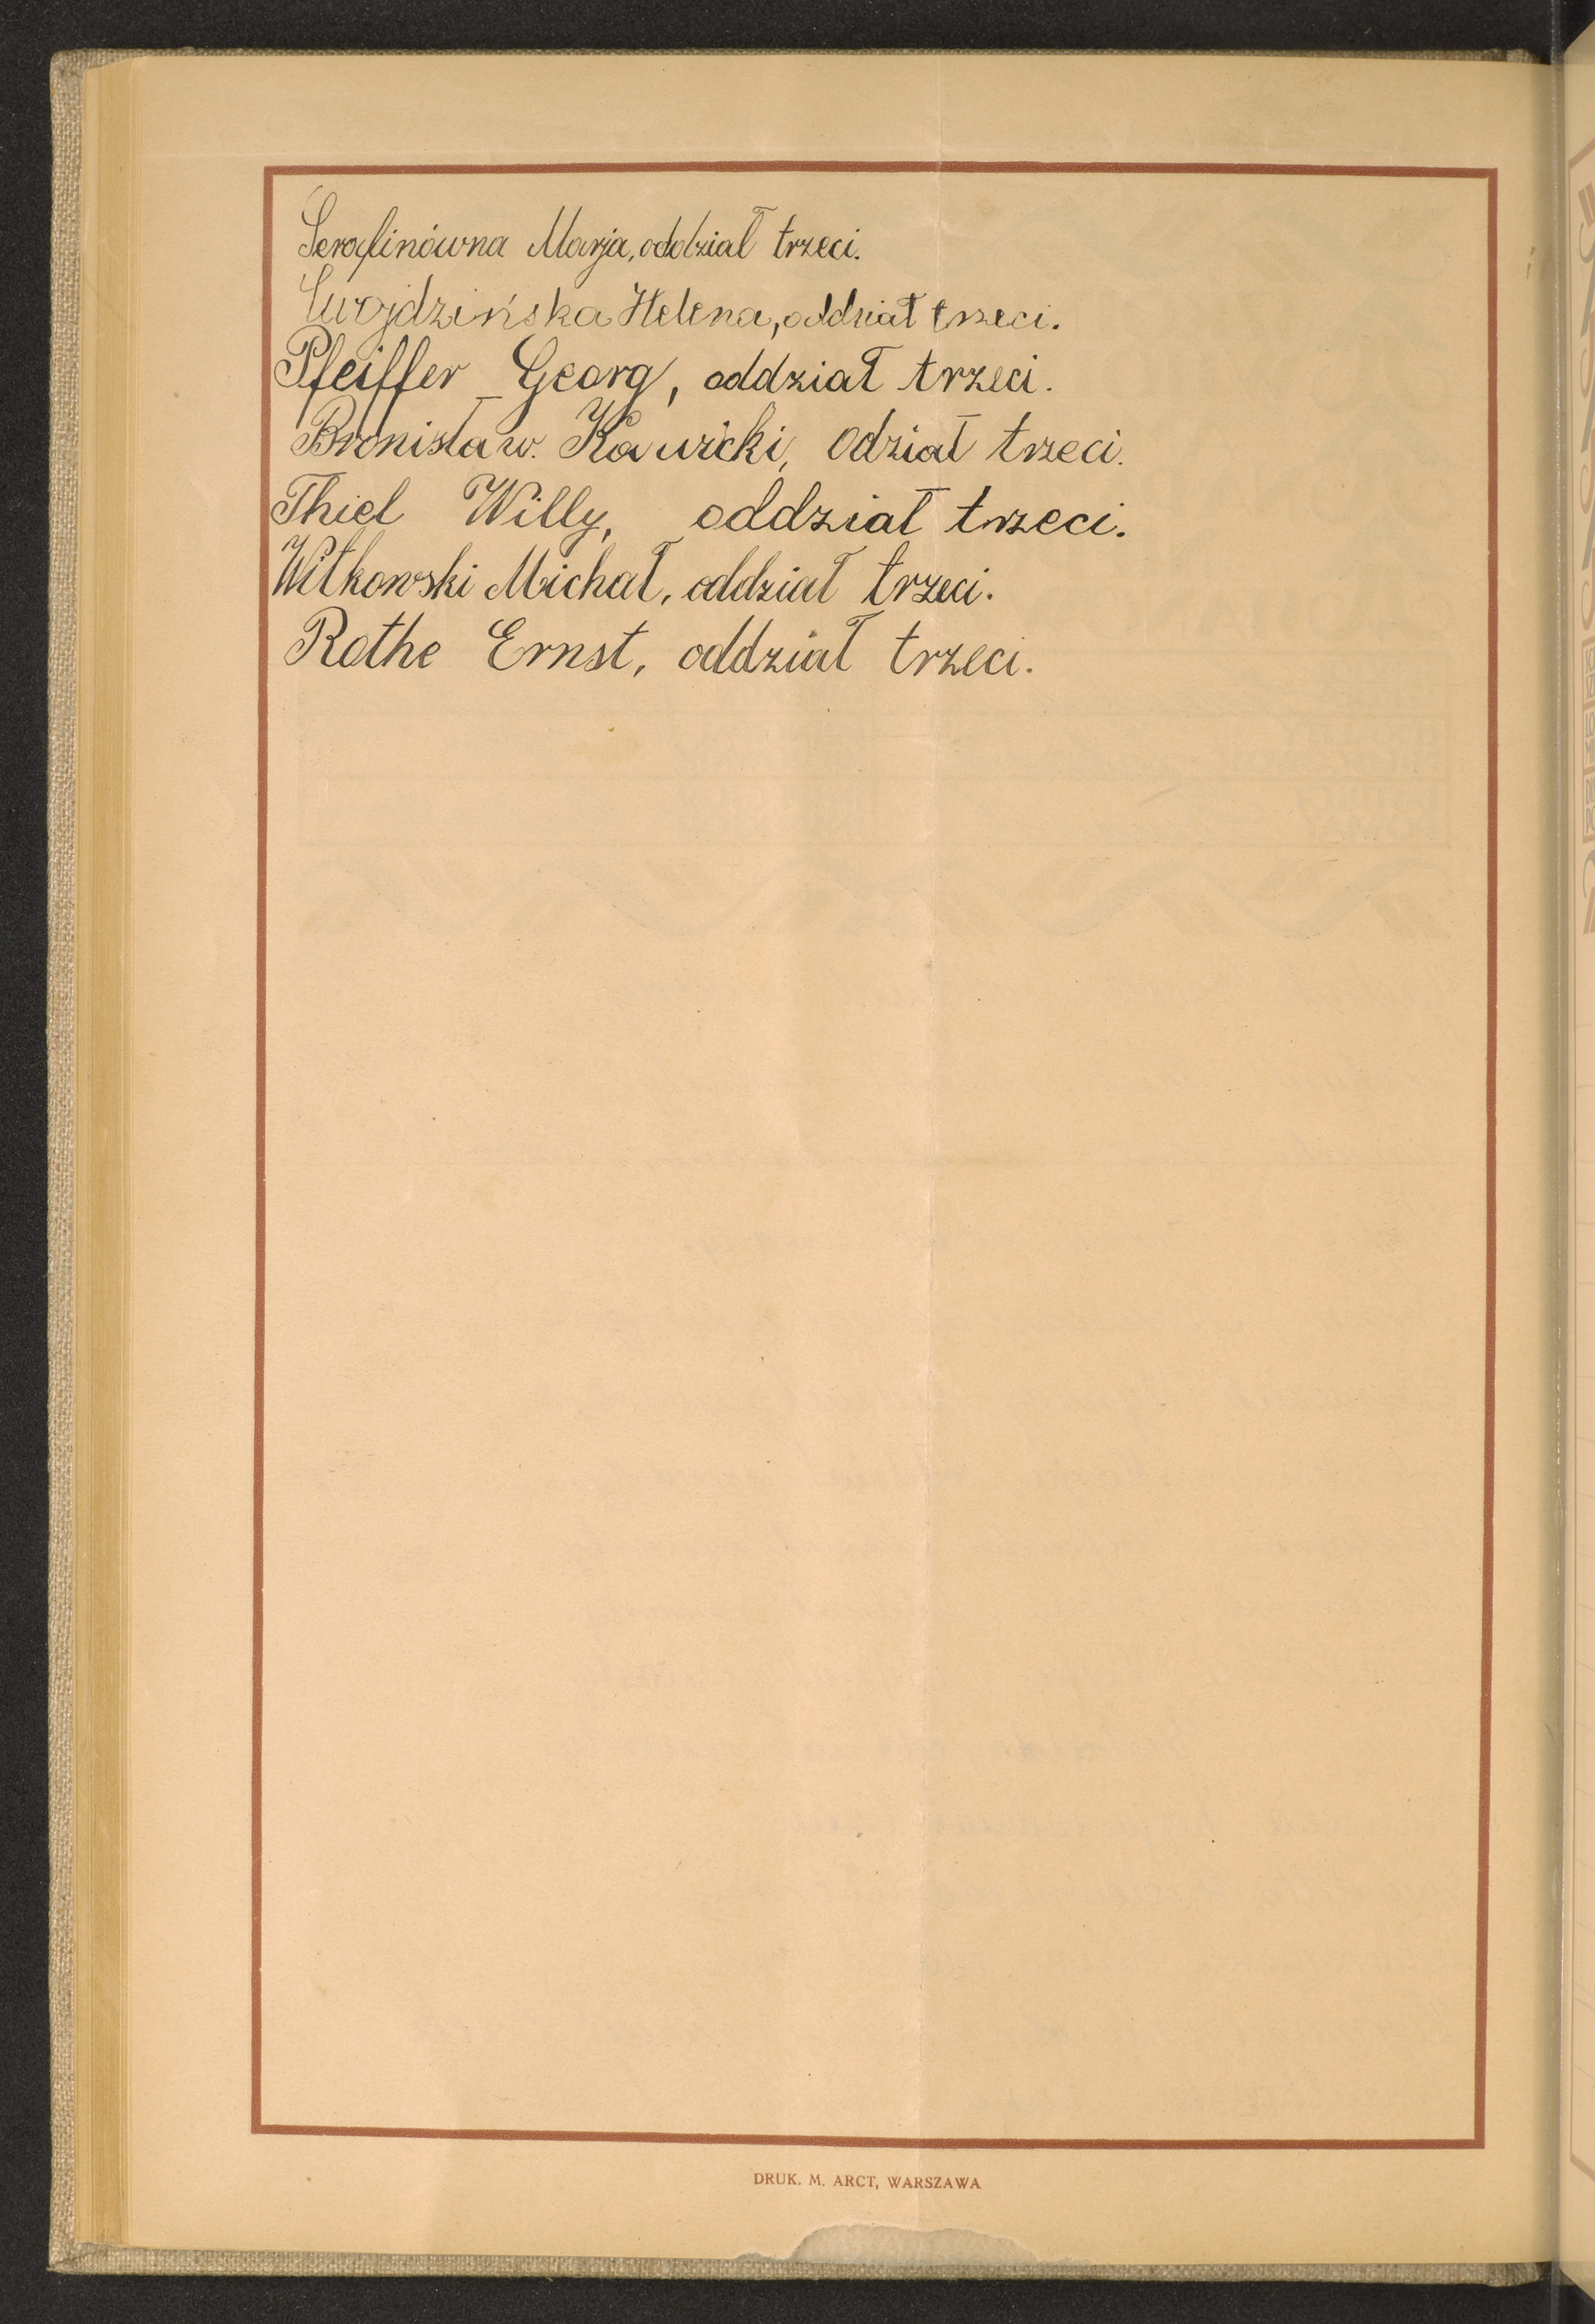 Serafinówna Marja, oddział trzeci.
Helena, oddział trzeci.
Pfeiffer Georg, oddział trzeci.
Bronisław. Kawicki, Odział trzeci.
Thiel Willy, oddział trzeci.
Witkowski Michał, oddział trzeci.
Rothe Ernst, oddział trzeci.
DRUK. M. ARCT, WARSZAWA